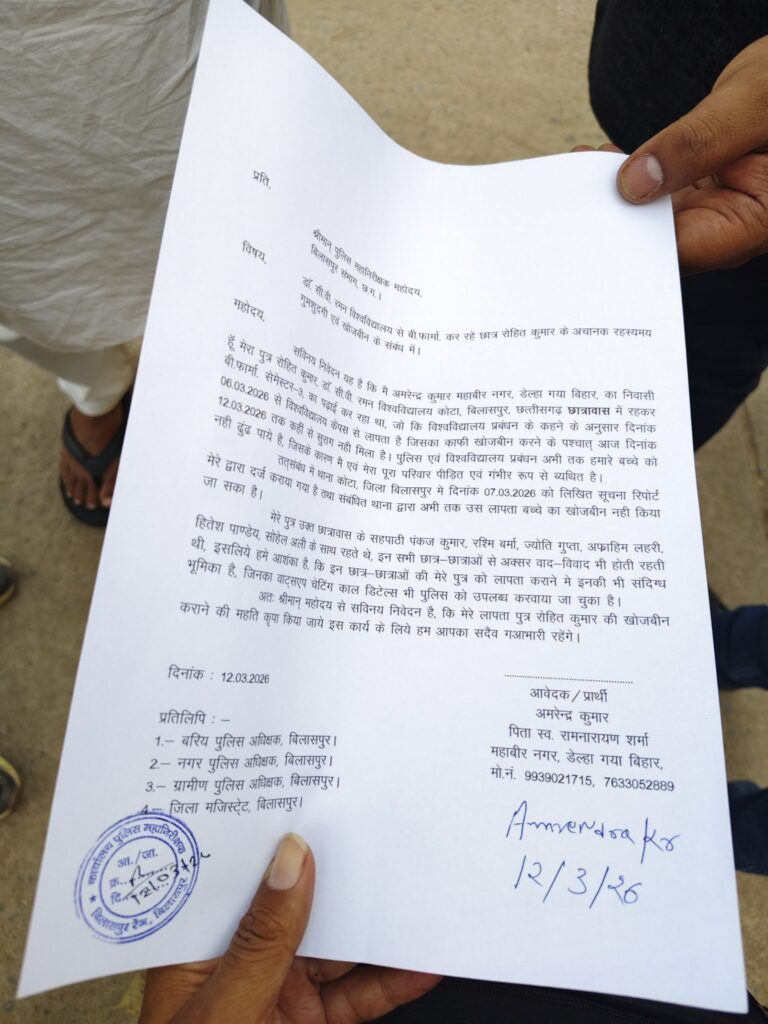 प्रति,
श्रीमान् पुलिस महानिरीक्षक महोदय,
बिलासपुर संभाग, छ.ग.।
विषय,
डॉ. सी.वी. रमन विश्वविद्यालय से बी.फार्मा. कर रहे छात्र रोहित कुमार के अचानक रहस्यमय
गुमशुदगी एवं खोजबीन के संबंध में।
महोदय,
सविनय निवेदन यह है कि मै अमरेन्द्र कुमार महाबीर नगर, डेल्हा गया बिहार, का निवासी
हूँ, मेरा पुत्र रोहित कुमार, डॉ. सी.वी. रमन विश्वविद्यालय कोटा, बिलासपुर, छत्तीसगढ़ छात्रावास में रहकर
बी.फार्मा. सेमेस्टर-3, का पढ़ाई कर रहा था, जो कि विश्वविद्यालय प्रबंधन के कहने के अनुसार दिनांक
06.03.2026 से विश्वविद्यालय कैंपस से लापता है जिसका काफी खोजबीन करने के पश्चात् आज दिनांक
12.03.2026 तक कही से सुराग नही मिला है। पुलिस एवं विश्वविद्यालय प्रबंधन अभी तक हमारे बच्चे को
नही ढुंढ पाये है, जिसके कारण मै एवं मेरा पूरा परिवार पीड़ित एवं गंभीर रूप से ब्यथित है।
तत्संबंध मे थाना कोटा, जिला बिलासपुर मे दिनांक 07.03.2026 को लिखित सूचना रिपोर्ट
मेरे द्वारा दर्ज कराया गया है तथा संबंधित थाना द्वारा अभी तक उस लापता बच्चे का खोजबीन नही किया
जा सका है।
मेरे पुत्र उक्त छात्रावास के सहपाठी पंकज कुमार, रश्मि बर्मा, ज्योति गुप्ता, अफ्राहिम लहरी,
हितेश पाण्डेय, सोहेल अली के साथ रहते थे, इन सभी छात्र-छात्राओं से अक्सर वाद-विवाद भी होती रहती
थी, इसलिये हमे आशंका है, कि इन छात्र-छात्राओं की मेरे पुत्र को लापता कराने मे इनकी भी संदिग्ध
भूमिका है, जिनका वाट्सएप चेटिंग काल डिटेल्स भी पुलिस को उपलब्ध करवाया जा चुका है।
अतः श्रीमान् महोदय से सविनय निवेदन है, कि मेरे लापता पुत्र रोहित कुमार की खोजबीन
कराने की महति कृपा किया जाये इस कार्य के लिये हम आपका सदैव गआभारी रहेंगे।
दिनांक : 12.03.2026
आवेदक/प्रार्थी
अमरेन्द्र कुमार
पिता स्व. रामनारायण शर्मा
महाबीर नगर, डेल्हा गया बिहार,
मो.नं. 9939021715, 7633052889
प्रतिलिपि : –
1.– बरिय पुलिस अधिक्षक, बिलासपुर।
2.– नगर पुलिस अधिक्षक, बिलासपुर।
3.– ग्रामीण पुलिस अधिक्षक, बिलासपुर।
4.– जिला मजिस्ट्रेट, बिलासपुर।
Amrendra Kr
12/3/26
कार्यालय पुलिस महानिरीक्षक
आ./जा.
क्र.
दि. 12/03/26
बिलासपुर रेंज, बिलासपुर